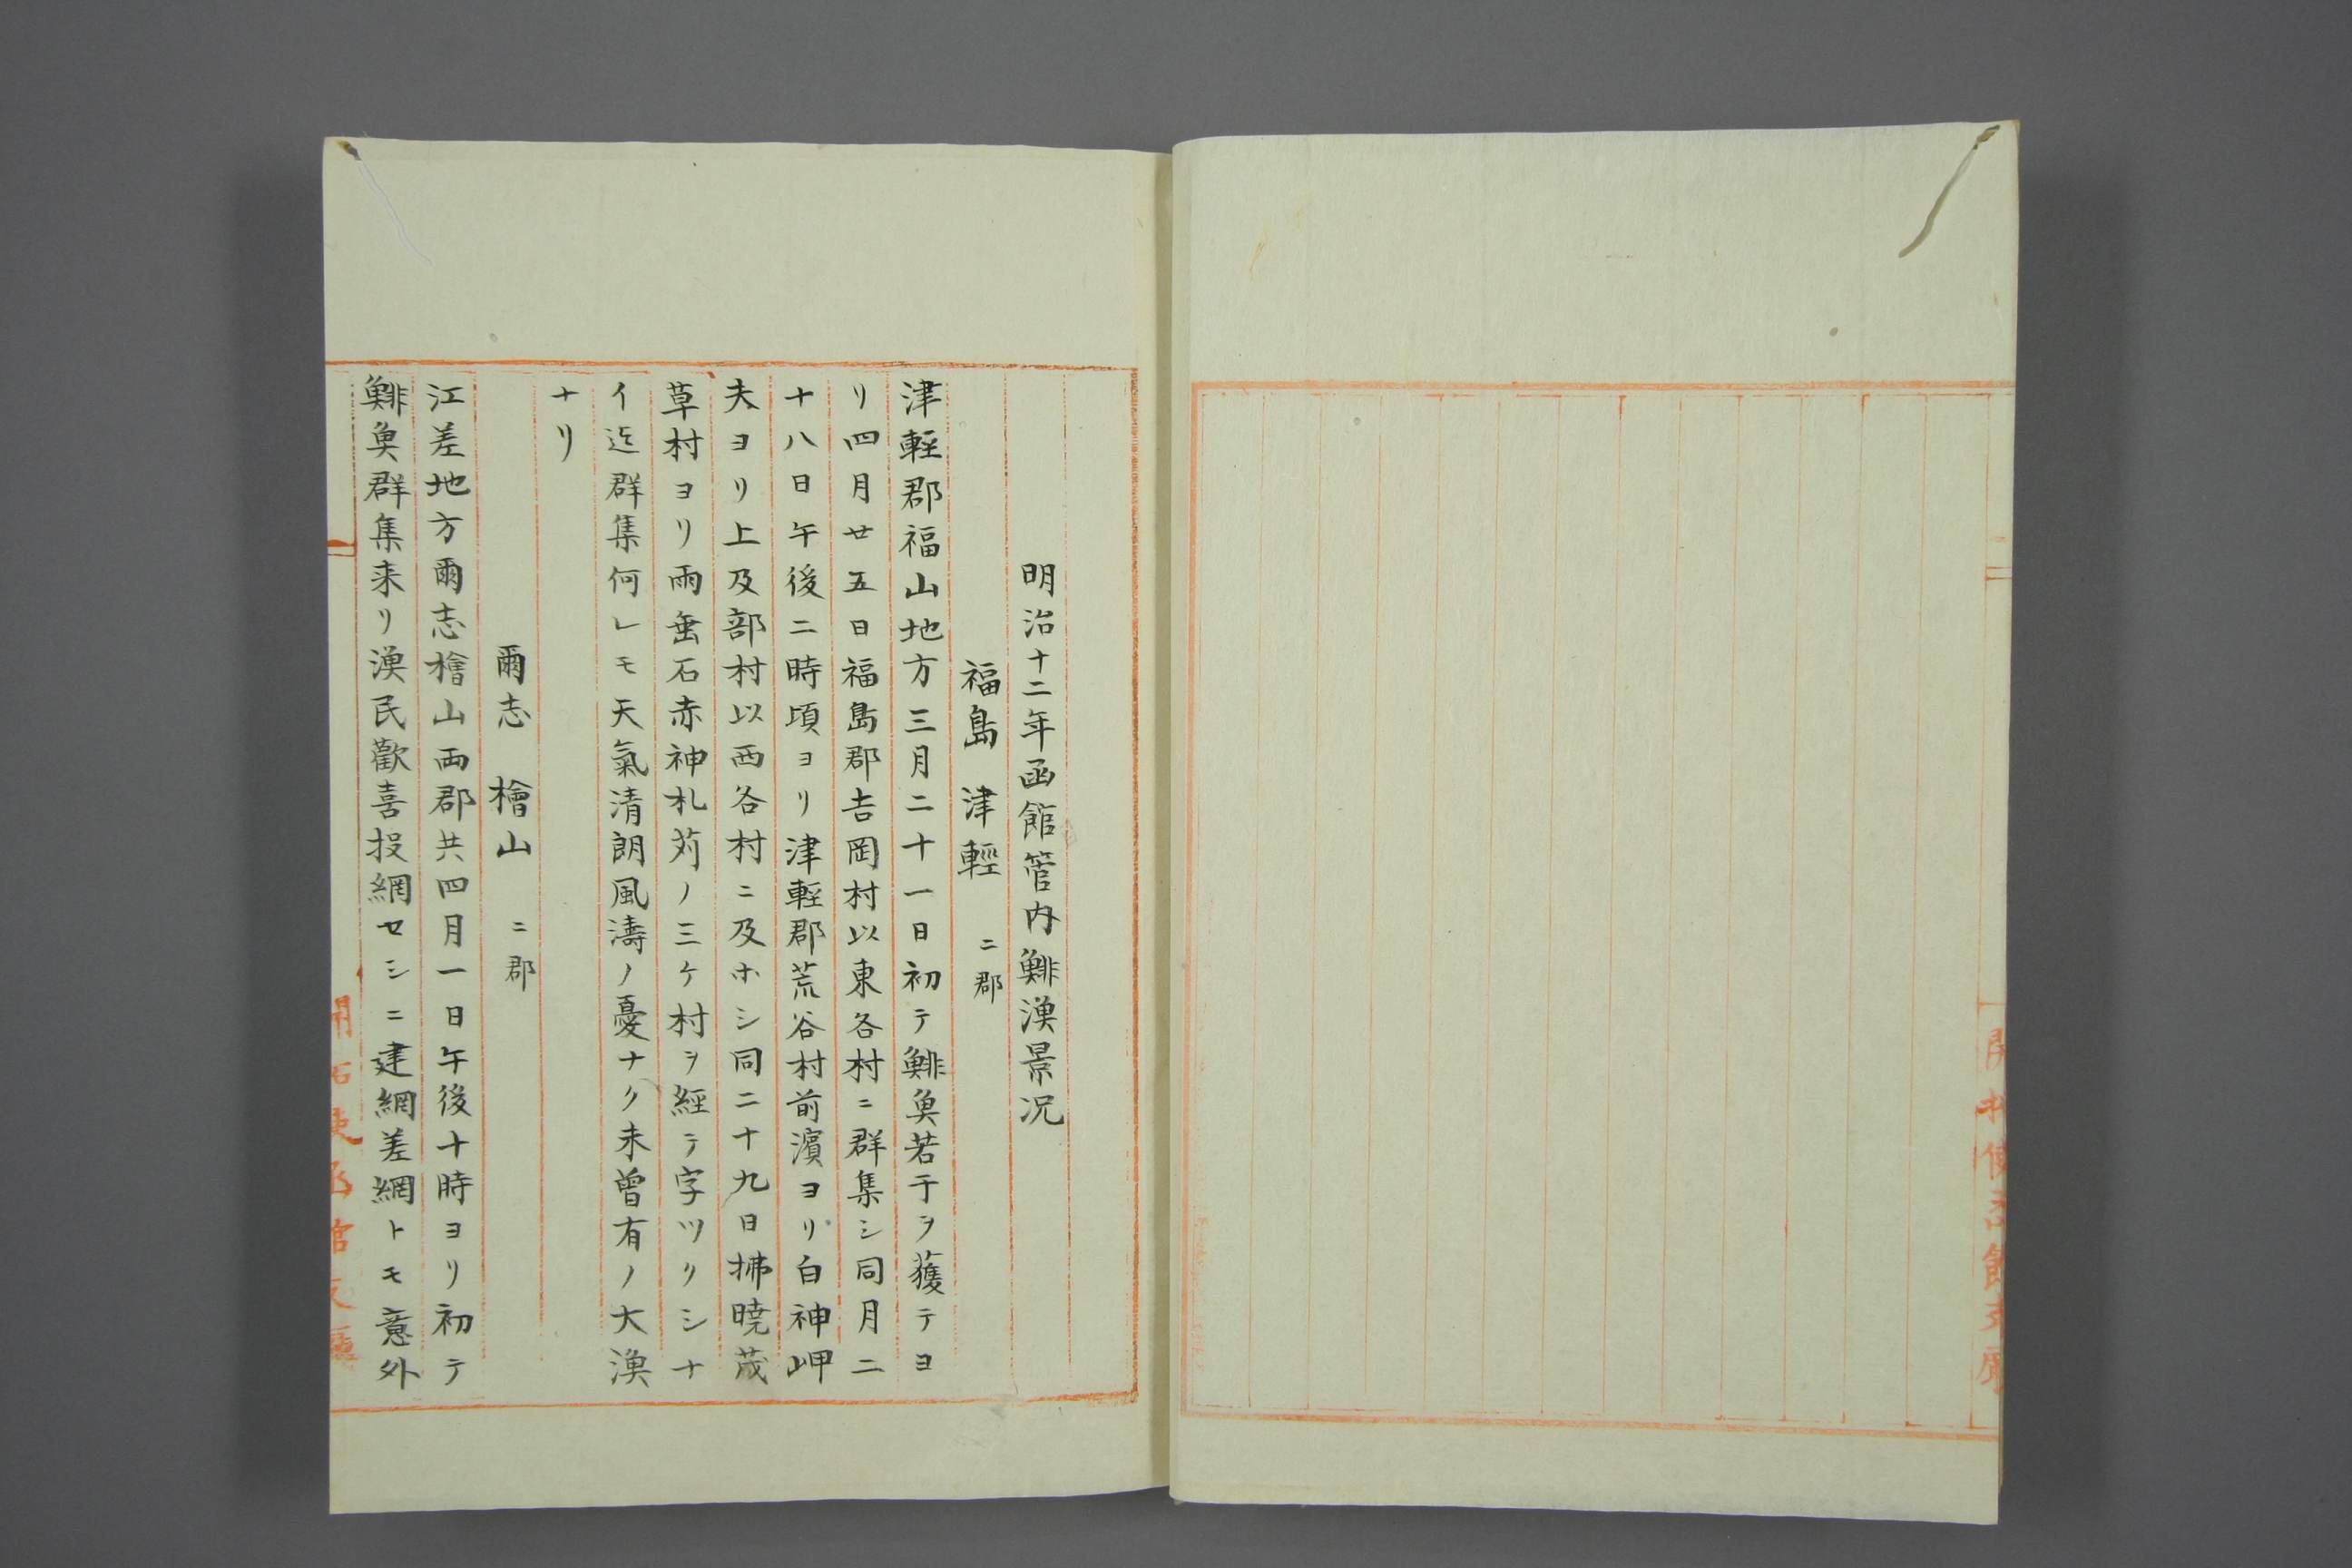 明治十二年函館管内鯡漁景况
福島　津輕　二郡
津輕郡福山地方三月二十一日初テ鯡魚若干ヲ獲テヨ
リ四月廿五日福島郡吉岡村以東各村ニ群集シ同月二
十八日午後二時頃ヨリ津輕郡荒谷村前濱ヨリ白神岬
夫ヨリ上及部村以西各村ニ及ホシ同二十九日拂曉茂
草村ヨリ雨垂石赤神札苅ノ三ケ村ヲ經テ字ツクシナ
イ迄群集何レモ天氣清朗風濤ノ憂ナク未曽有ノ大漁
ナリ
爾志　檜山　二郡
江差地方爾志檜山両郡共四月一日午後十時ヨリ初テ
鯡魚群集来リ漁民歡喜投網セシニ建網差網トモ意外
開拓使函館支廳
開拓使函館支廳